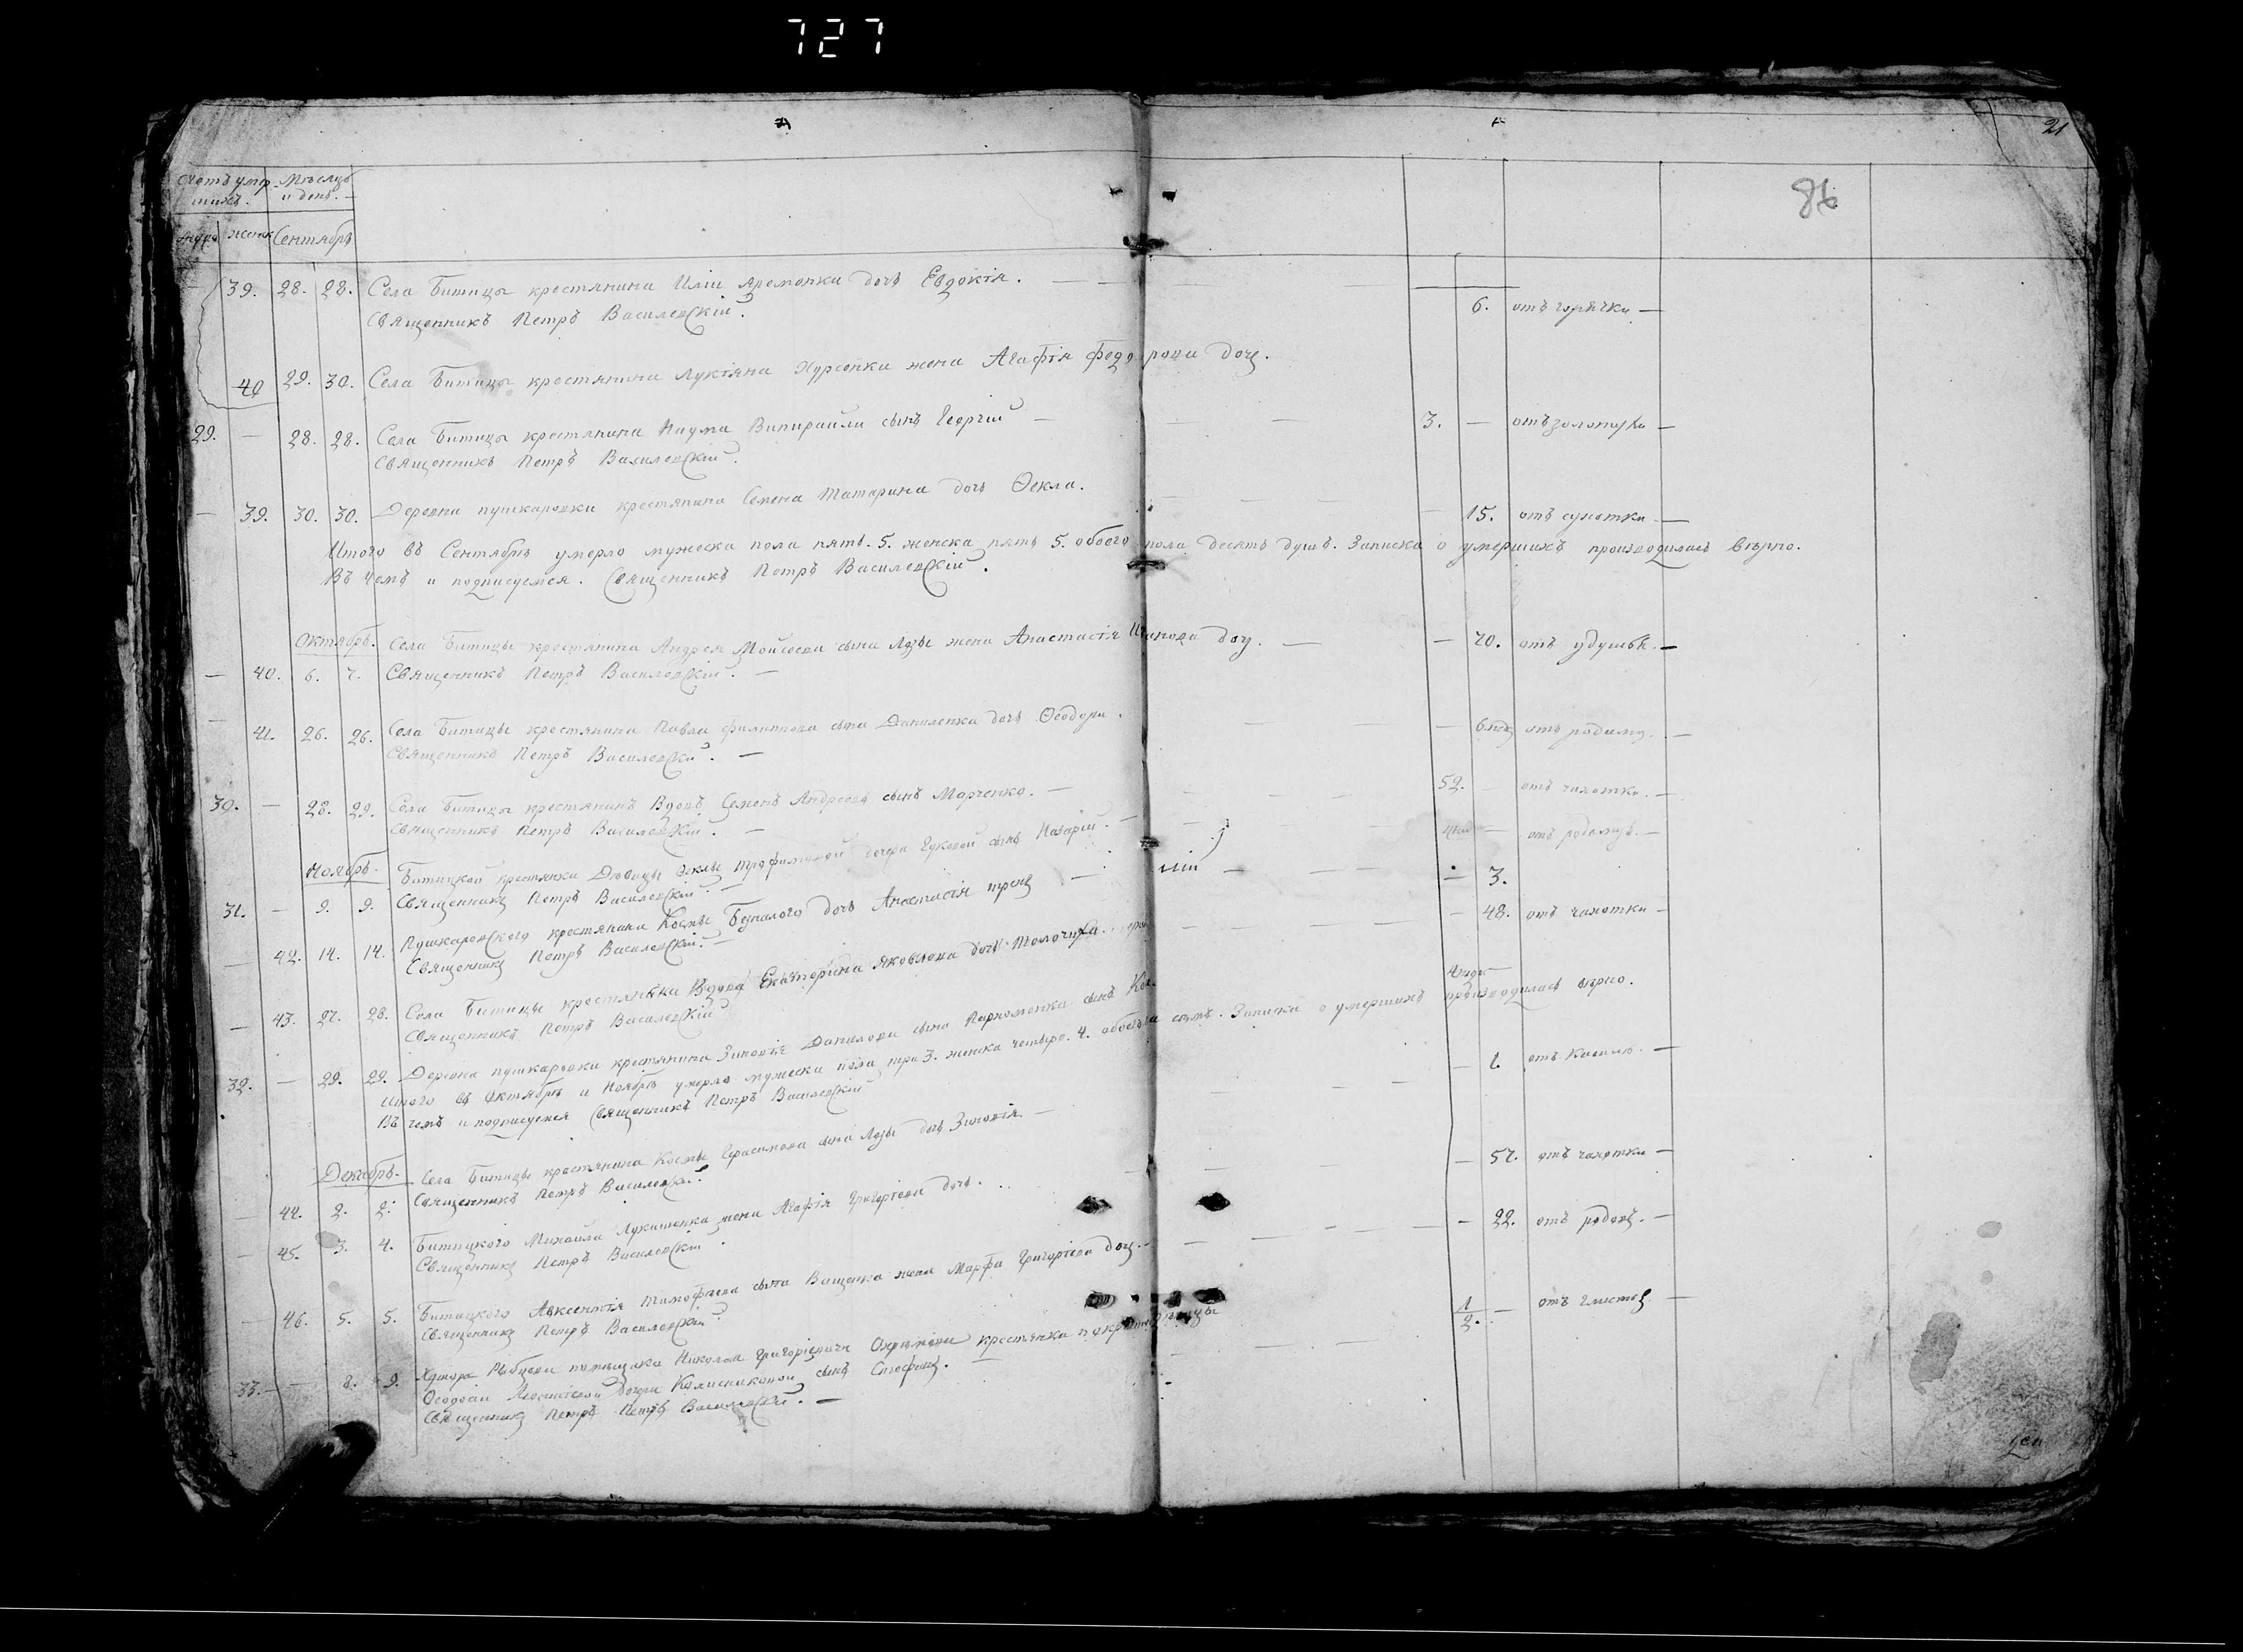 727
21
86
Счетъ умер-
шихъ.
Мѣсяцъ
и день.
женск
Сентябрь
39. 28. 28. Села Битицы крестянина Иліи Яременка дочь Евдокія. 6. отъ горячки
Священникъ Петръ Василевскій.
40 29. 30. Села Битицы крестянина Лукіяна Хурсенка жена Агафія Федорова дочь.
29. 28. 28. Села Битицы крестянина Наума сынъ Георгій 3. отъ золотухи
Священникъ Петръ Василевскій.
39. 30. 30. Деревни пушкаровки крестянина Семена Татарина дочь Ѳекла. 15. отъ сухотки
Итого въ Сентябрѣ умерло мужеска пола пять. 5. женска пять 5. обоего пола десять душъ. Записка о умершихъ производилась вѣрно.
Въ чемъ и подписуемся. Священникъ Петръ Василевскій.
Октябрь. Села Битицы крестянина Андрея Мойсеева сына Лозы жена Анастасія дочь. 70. отъ удушья.
40. 6. 7. Священникъ Петръ Василевскій.
41. 26. 26. Села Битицы крестянина Павла Филиппова сына Даниленка дочь Ѳеодора. 6 нед отъ родимц.
Священникъ Петръ Василевскій.
30. 28. 29. Села Битицы крестянинъ Вдовъ Семенъ Андреевъ сынъ Марченко. 52. отъ чахотки.
Священникъ Петръ Василевскій.
Ноябрь. Битицкой крестянки Дѣвицы Ѳеклы Трофимовой дочери сынъ Назарій. отъ родимца.
31. 9. 9. Священникъ Петръ Василевскій.
42. 14. 14. Пушкаровского крестянина Космы Безпалого дочь Анастасія 3.
Священникъ Петръ Василевскій.
43. 27. 28. Села Битицы крестянка Вдова Екатерина Яковлева дочь 48. отъ чахотки
Священникъ Петръ Василевскій
32. 29. 29. Деревни пушкаровки крестянина Зиновія Данилова сына Пархоменка сынъ
Итого въ Октябрѣ и Ноябрѣ умерло мужеска пола три 3. женска четыре. 4. обоего семь. Записка о умершихъ производилась вѣрно.
Въ чемъ и подписуемся Священникъ Петръ Василевскій
Декабрь. Села Битицы крестянина Космы Герасимова сына Лозы дочь Зиновія отъ кашлю.
44. 2. 2. Священникъ Петръ Василевскій.
45. 3. 4. Битицкого Михаила Лукашенка жена Агафія Григоріева дочь. 57. отъ чахотки
Священникъ Петръ Василевскій.
46. 5. 5. Битицкого Авксентія Тимофѣева сына Ващенка жена Марфа Григоріева дочь. 22. отъ родовъ.
Священникъ Петръ Василевскій.
33. 8. 9. Хутора помѣщика Николая Григоріевича крестянки 1/2. отъ глистов
Ѳеодосіи дочери Колисниковой сынъ Стефанъ.
Священникъ Петръ Петръ Василевскій.